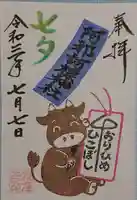 奉拝
おりひめ
ひこぼし
七夕
令和三年七月七日